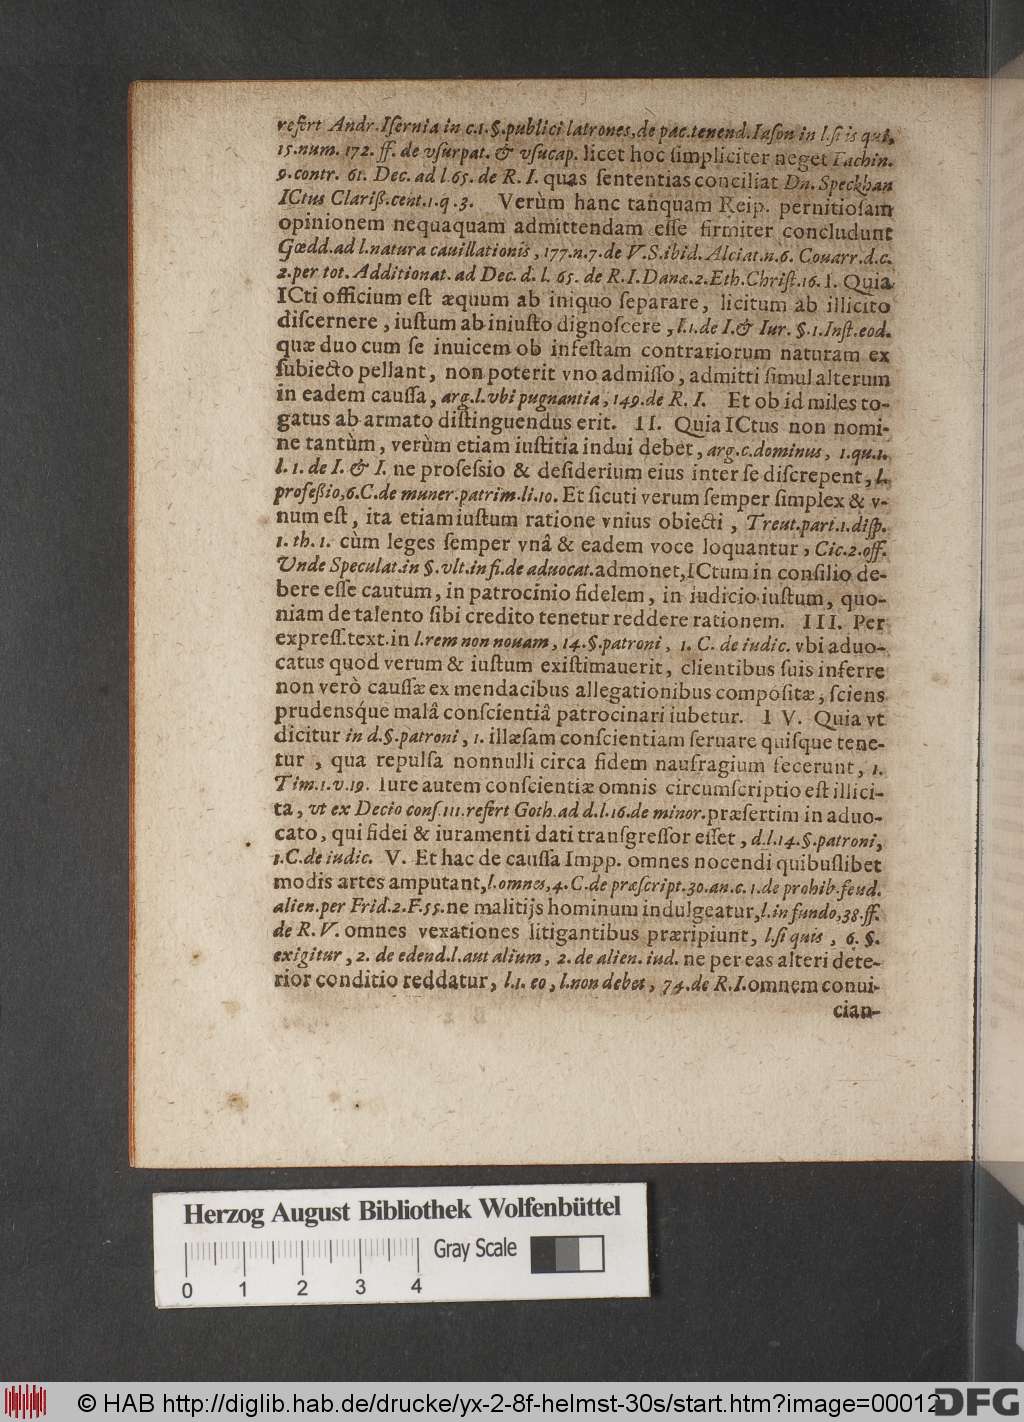 refert Andr. Iſernia in c.1.§. publici latrones, de pac. tenend. Iaſon in l. ſi is qui,
15. num. 172. ff. de vſurpat. & vſucap. licet hoc ſimpliciter neget Fachin.
9. contr. 61. Dec. ad l. 65. de R. I. quas ſententias conciliat Dn. Speckhan
ICtus Clariß. cent. 1. q. 3. Verùm hanc tanquam Reip. pernitioſam
opinionem nequaquam admittendam eſſe firmiter concludunt
Gœdd. ad l. natura cauillationis, 177. n. 7. de V. S. ibid. Alciat. n. 6. Couarr. d. c.
2. per tot. Additionat. ad Dec. d. l. 65. de R. I. Danæ. 2. Eth. Chriſt. 16. I. Quia
ICti officium eſt æquum ab iniquo ſeparare, licitum ab illicito
diſcernere, iuſtum ab iniuſto dignoſcere, l. 1. de I. & Iur. §. 1. Inſt. eod.
quæ duo cum ſe inuicem ob infeſtam contrariorum naturam ex
ſubiecto pellant, non poterit vno admiſſo, admitti ſimul alterum
in eadem cauſſa, arg. l. vbi pugnantia, 149. de R. I. Et ob id miles to-
gatus ab armato diſtinguendus erit. II. Quia ICtus non nomi-
ne tantùm, verùm etiam iuſtitia indui debet, arg. c. dominus, 1. qu. 1.
l. 1. de I. & I. ne profeſsio & deſiderium eius inter ſe diſcrepent, l.
profeßio, 6. C. de muner. patrim. li. 10. Et ſicuti verum ſemper ſimplex & v-
num eſt, ita etiam iuſtum ratione vnius obiecti, Treut. part. 1. diſp.
1. th. 1. cùm leges ſemper vnâ & eadem voce loquantur, Cic. 2. off.
Vnde Speculat. in §. vlt. in fi. de aduocat. admonet, ICtum in conſilio de-
bere eſſe cautum, in patrocinio fidelem, in iudicio iuſtum, quo-
niam de talento ſibi credito tenetur reddere rationem. III. Per
expreſſ. text. in l. rem non nouam, 14. §. patroni, 1. C. de iudic. vbi aduo-
catus quod verum & iuſtum exiſtimauerit, clientibus ſuis inferre
non verò cauſſæ ex mendacibus allegationibus compoſitæ, ſciens
prudensq́ue malâ conſcientiâ patrocinari iubetur. IV. Quia vt
dicitur in d. §. patroni, 1. illæſam conſcientiam ſeruare quiſque tene-
tur, qua repulſa nonnulli circa fidem naufragium fecerunt, 1.
Tim. 1. v. 19. Iure autem conſcientiæ omnis circumſcriptio eſt illici-
ta, vt ex Decio conſ. 111. refert Goth. ad d. l. 16. de minor. præſertim in aduo-
cato, qui fidei & iuramenti dati tranſgreſſor eſſet, d. l. 14. §. patroni,
1. C. de iudic. V. Et hac de cauſſa Impp. omnes nocendi quibuſlibet
modis artes amputant, l. omnes, 4. C. de præſcript. 30. an. c. 1. de prohib. feud.
alien. per Frid. 2. F. 55. ne malitijs hominum indulgeatur, l. in fundo, 38. ff.
de R. V. omnes vexationes litigantibus præripiunt, l. ſi quis, 6. §.
exigitur, 2. de edend. l. aut alium, 2. de alien. iud. ne per eas alteri dete-
rior conditio reddatur, l. 1. eo, l. non debet, 74. de R. I. omnem conui-
cian-
Herzog August Bibliothek Wolfenbüttel
Gray Scale
0 1 2 3 4
© HAB http://diglib.hab.de/drucke/yx-2-8f-helmst-30s/start.htm?image=00012
DFG